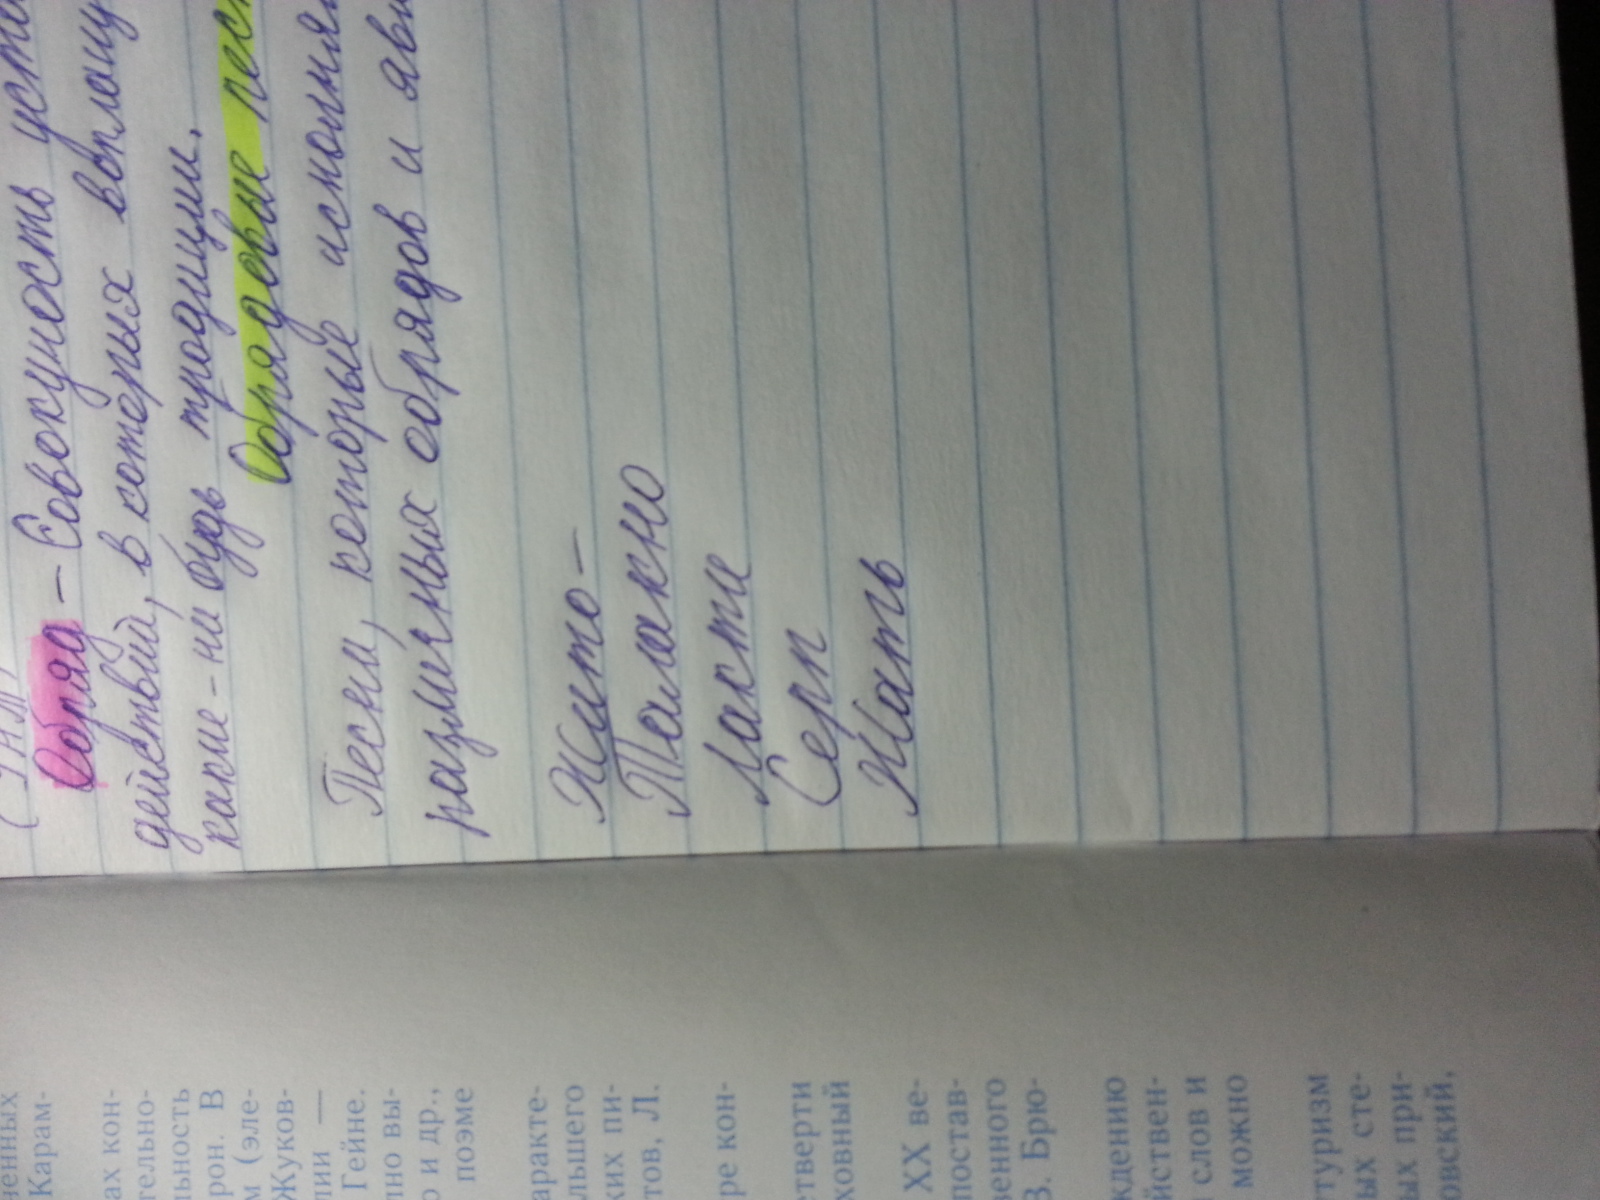 Обряд – Совокупность
действий, в которых
какие-ни будь традиции.
Обрядовые
Песни, которые
различных обрядов и
Жито –
Талакно
Ласти
Серп
Жать
ненных
Карам-
ах кон-
тельно-
льность
рон. В
м (эле-
Жуков-
лии —
Гейне.
лно вы-
о и др.,
поэме
аракте-
льшего
ких пи-
тов, Л.
ре кон-
етверти
ховный
XX ве-
постав-
венного
В. Брю-
ждению
йствен-
слов и
можно
туризм
ых сте-
ых при-
овский,